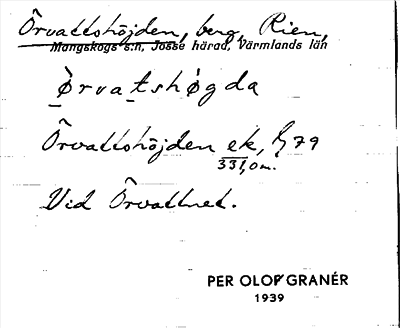 Örvattshöjden, berg, Rien,
Mangskogs s:n, Jösse härad, Värmlands län
ørvatshøgda
Örvattshöjden ek, 79
331,0 m.
Vid Örvattnet.
PER OLOF GRANÉR
1939